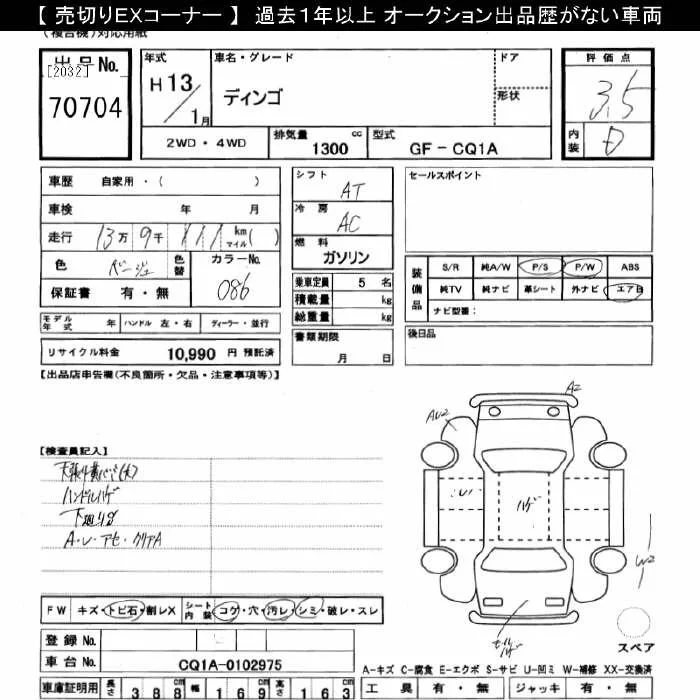 【 売切りEXコーナー 】 過去1年以上 オークション出品歴がない車両
(複合機)対応用紙
出品No.
[2032]
70704
年式
H 13
1月
車名・グレード
ディンゴ
ドア
形状
評価点
3.5
内装
D
2WD・4WD
排気量 cc
1300
型式
GF-CQ1A
車歴 自家用・( )
車検 年 月
走行 13万 9千 111 km マイル( )
色 ベージュ
色替
カラーNo.
086
保証書 有・無
シフト
AT
冷房
AC
燃料
ガソリン
乗車定員 5 名
積載量 kg
総重量 kg
書類期限
月 日
セールスポイント
装備品
S/R 純A/W P/S P/W ABS
純TV 純ナビ 革シート 外ナビ エアB
ナビ型番:
後日品
モデル年式 年 ハンドル 左・右 ディーラー・並行
リサイクル料金 10,990 円 預託済
【出品店申告欄(不良箇所・欠品・注意事項等)】
【検査員記入】
ハンドルハゲ
下廻りサ
A・U・アセ・クリアA
A2
AU2
U1
ハゲ
W2
モールハゲ
FW キズ・トビ石・割レX
シート内装 コゲ・穴・汚レ・シミ・破レ・スレ
スペア
登録No.
車台No. CQ1A-0102975
A-キズ C-腐食 E-エクボ S-サビ U-凹ミ W-補修 XX-交換済
車庫証明用 長さ 388 幅 169 高さ 163
工具 有・無 ジャッキ 有・無